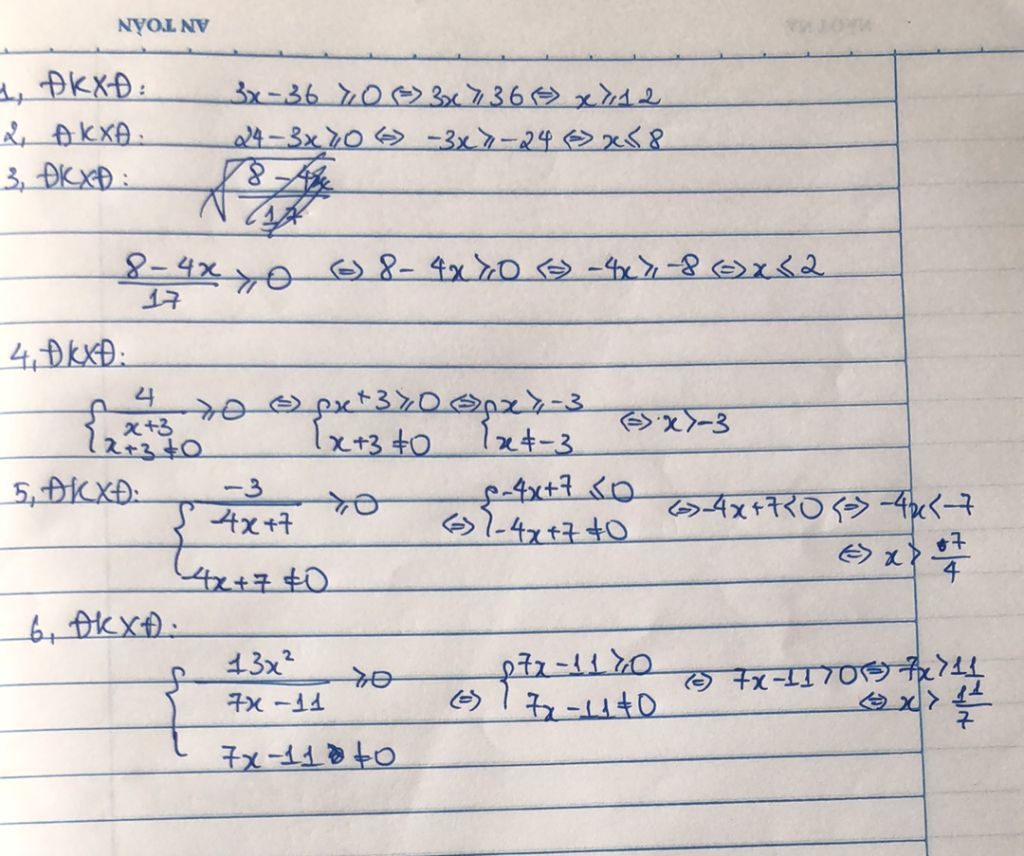 AN TOÀN
1, ĐKXĐ: 3x-36 ≥ 0 ⇔ 3x ≥ 36 ⇔ x ≥ 12
2, ĐKXĐ: 24-3x ≥ 0 ⇔ -3x ≥ -24 ⇔ x ≤ 8
3, ĐKXĐ:
(8-4x)/17 ≥ 0 ⇔ 8-4x ≥ 0 ⇔ -4x ≥ -8 ⇔ x ≤ 2
4, ĐKXĐ:
{ 4/(x+3) ≥ 0 ⇔ { x+3 ≥ 0 ⇔ { x ≥ -3 ⇔ x > -3
x+3 ≠ 0 x+3 ≠ 0 x ≠ -3
5, ĐKXĐ: { -3/(-4x+7) ≥ 0 ⇔ { -4x+7 ≤ 0 ⇔ -4x+7 < 0 ⇔ -4x < -7
-4x+7 ≠ 0 -4x+7 ≠ 0 ⇔ x > 7/4
6, ĐKXĐ:
{ 13x²/(7x-11) ≥ 0 ⇔ { 7x-11 ≥ 0 ⇔ 7x-11 > 0 ⇔ 7x > 11
7x-11 ≠ 0 7x-11 ≠ 0 ⇔ x > 11/7